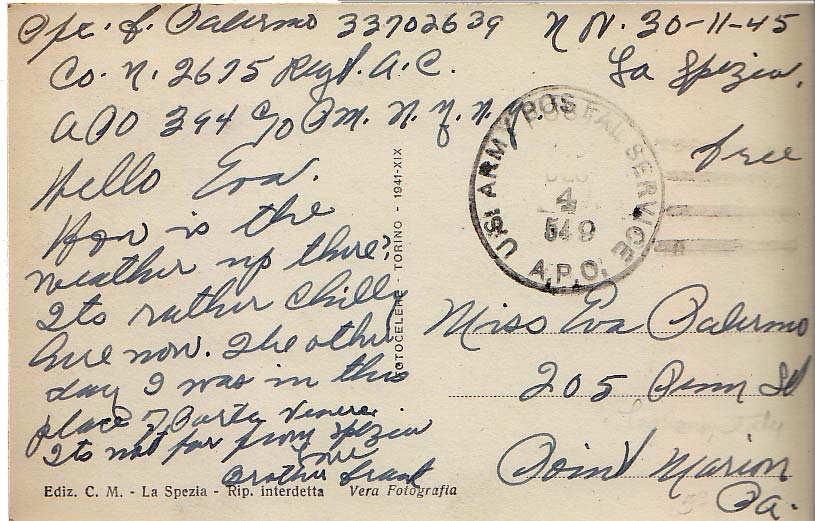 Palermo 33702639 30-11-45
Co. N. 2675 Regt. A.C. La Spezia,
APO 394 c/o P.M. N.Y. N.Y.
free
Hello Eva.
How is the
weather up there?
Its rather chilly
here now. The other
day I was in this
place of Porto Venere
Its not far from Spezia
Love
Brother Frank
U.S. ARMY POSTAL SERVICE
DEC
4
A.P.O.
FOTOCELERE - TORINO - 1941-XIX
Miss Eva Palermo
205 Penn St
Point Marion
Pa.
Ediz. C. M. - La Spezia - Rip. interdetta Vera Fotografia